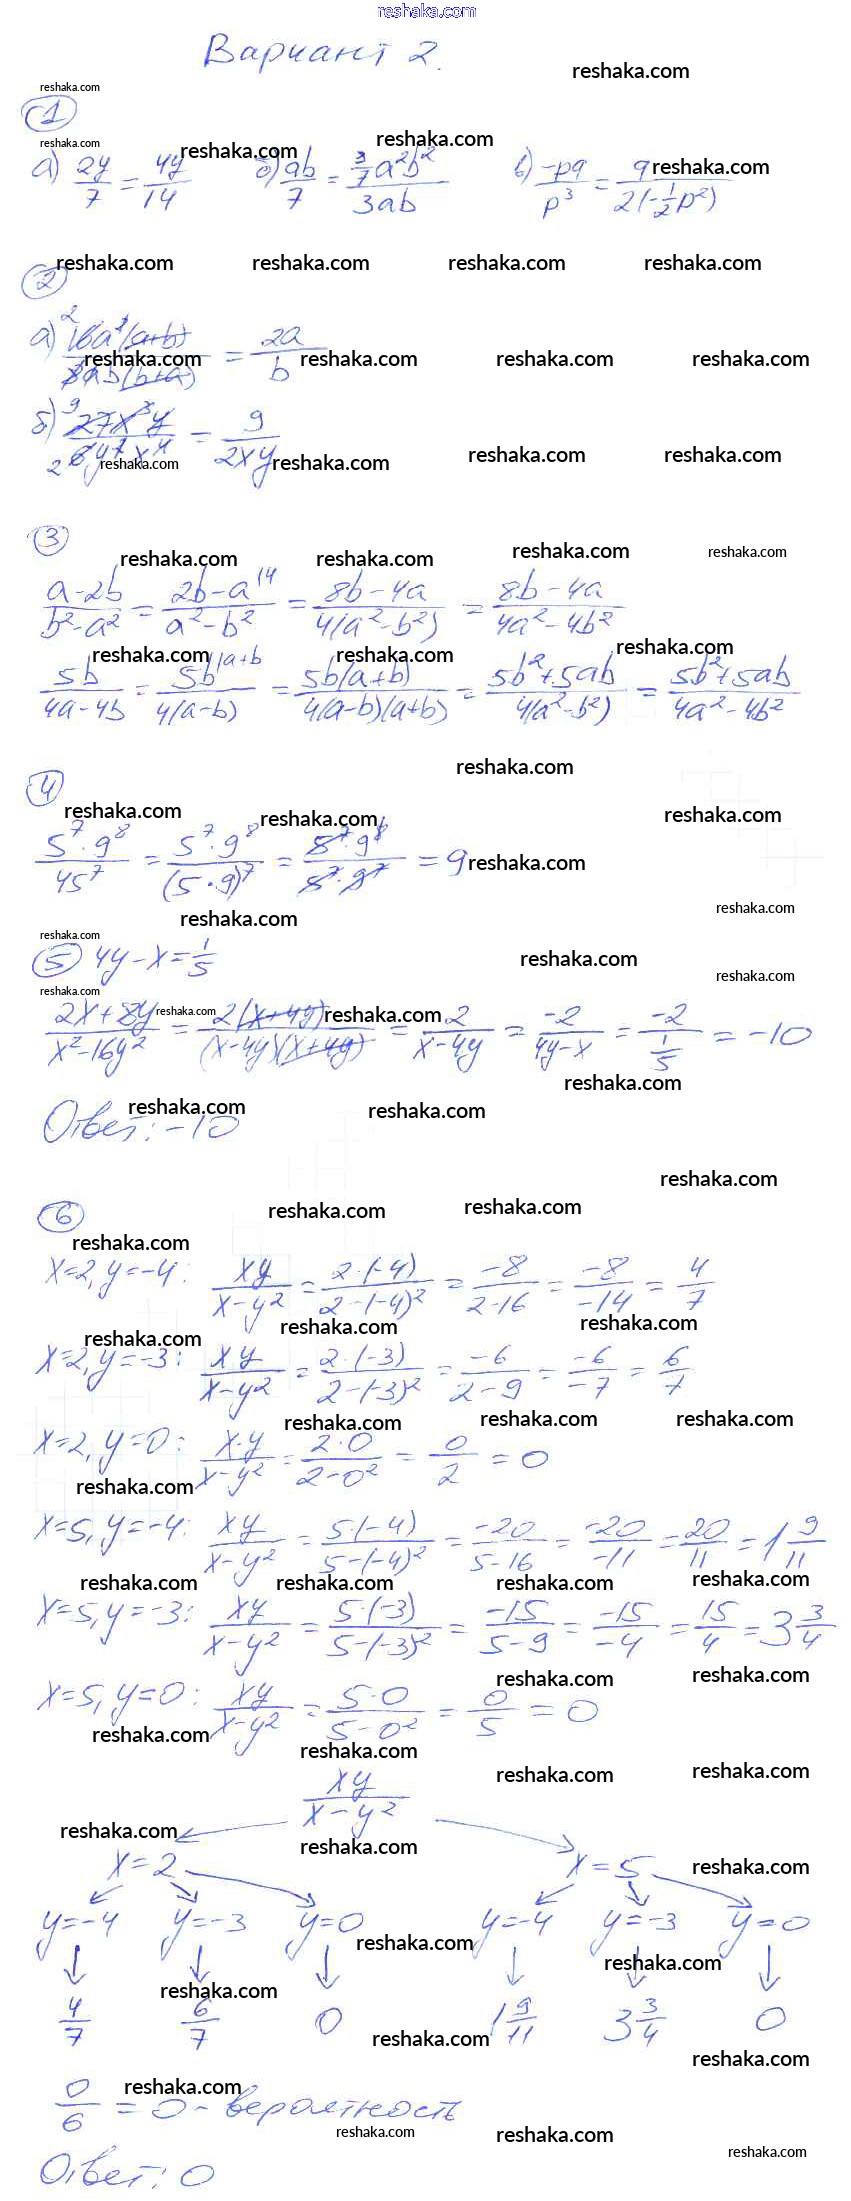 reshaka.com
Вариант 2.
1
а) 2y/7 = 4y/14 б) ab/7 = 3/7 a²b²/3ab в) -pq/p³ = q/2(-1/2 p²)
2
а) 16a²(a+b)/8ab(b+a) = 2a/b
б) 27x³y/6y²x⁴ = 9/2xy
3
a-2b/b²-a² = 2b-a\4/a²-b² = 8b-4a/4(a²-b²) = 8b-4a/4a²-4b²
5b/4a-4b = 5b\a+b/4(a-b) = 5b(a+b)/4(a-b)(a+b) = 5b²+5ab/4(a²-b²) = 5b²+5ab/4a²-4b²
4
5⁷·9⁸/45⁷ = 5⁷·9⁸/(5·9)⁷ = 5⁷·9⁸/5⁷·9⁷ = 9
5 4y-x=1/5
2x+8y/x²-16y² = 2(x+4y)/(x-4y)(x+4y) = 2/x-4y = -2/4y-x = -2/(1/5) = -10
Ответ: -10
6
x=2, y=-4: xy/x-y² = 2·(-4)/2-(-4)² = -8/2-16 = -8/-14 = 4/7
x=2, y=-3: xy/x-y² = 2·(-3)/2-(-3)² = -6/2-9 = -6/-7 = 6/7
x=2, y=0: x·y/x-y² = 2·0/2-0² = 0/2 = 0
x=5, y=-4: xy/x-y² = 5·(-4)/5-(-4)² = -20/5-16 = -20/-11 = 20/11 = 1 9/11
x=5, y=-3: xy/x-y² = 5·(-3)/5-(-3)² = -15/5-9 = -15/-4 = 15/4 = 3 3/4
x=5, y=0: xy/x-y² = 5·0/5-0² = 0/5 = 0
xy/x-y²
x=2 x=5
y=-4 y=-3 y=0 y=-4 y=-3 y=0
4/7 6/7 0 1 9/11 3 3/4 0
0/6 = 0 - вероятность
Ответ: 0